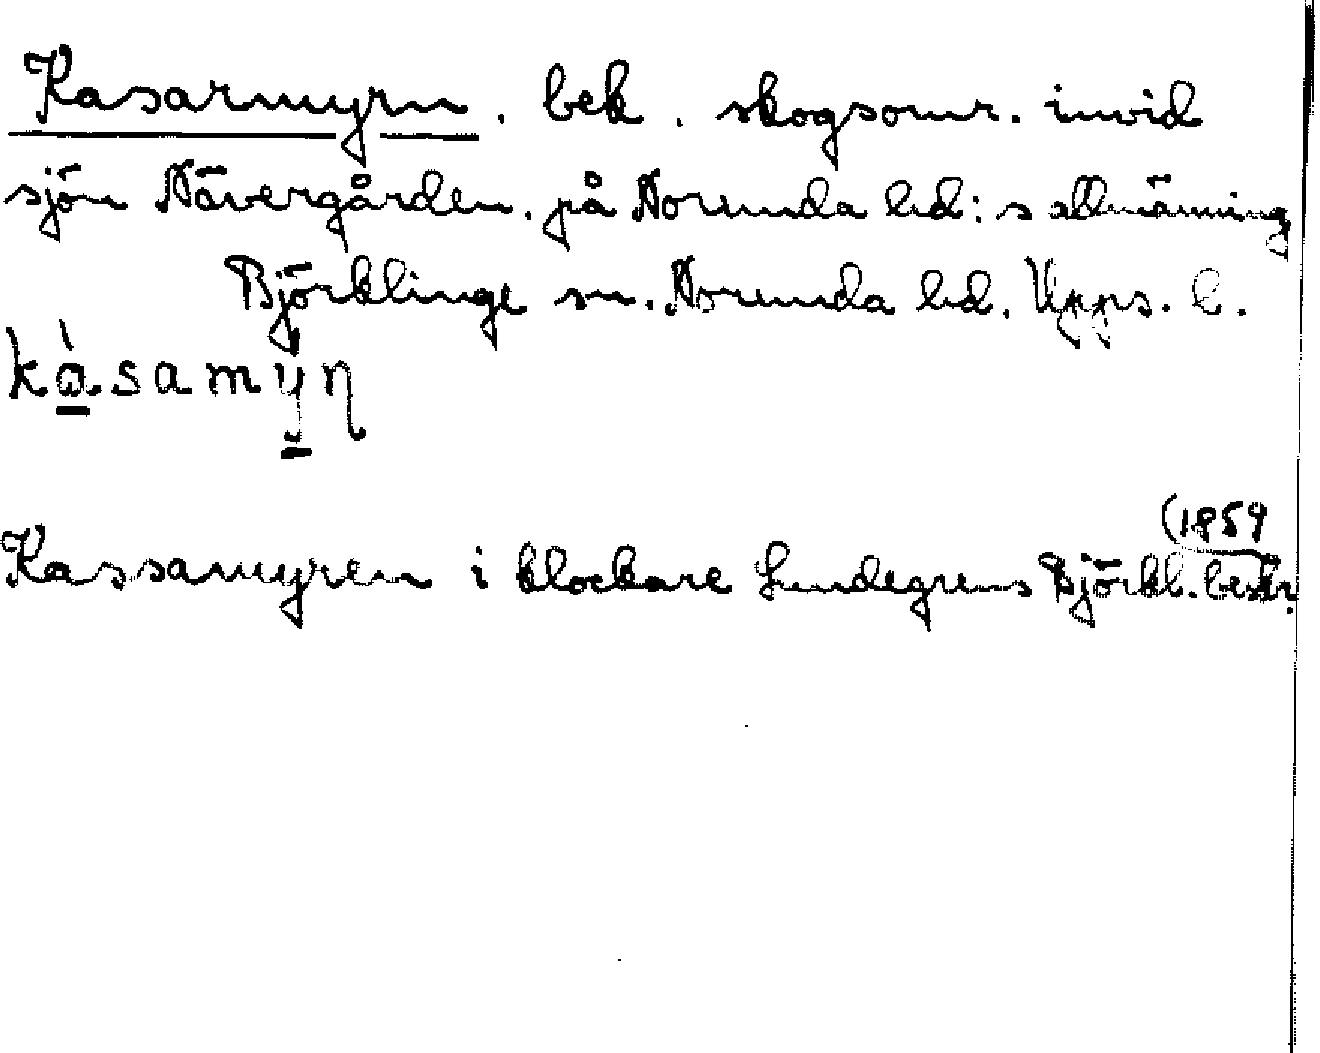 Kasarmyrn. bek. skogsomr. invid
sjön Nävergården. på Norunda hd:s allmänning
Björklinge sn. Norunda hd. Upps. l.
kàsamyn
(1859
Kassamyren i klockare Lundegrens Björkl. beskr.